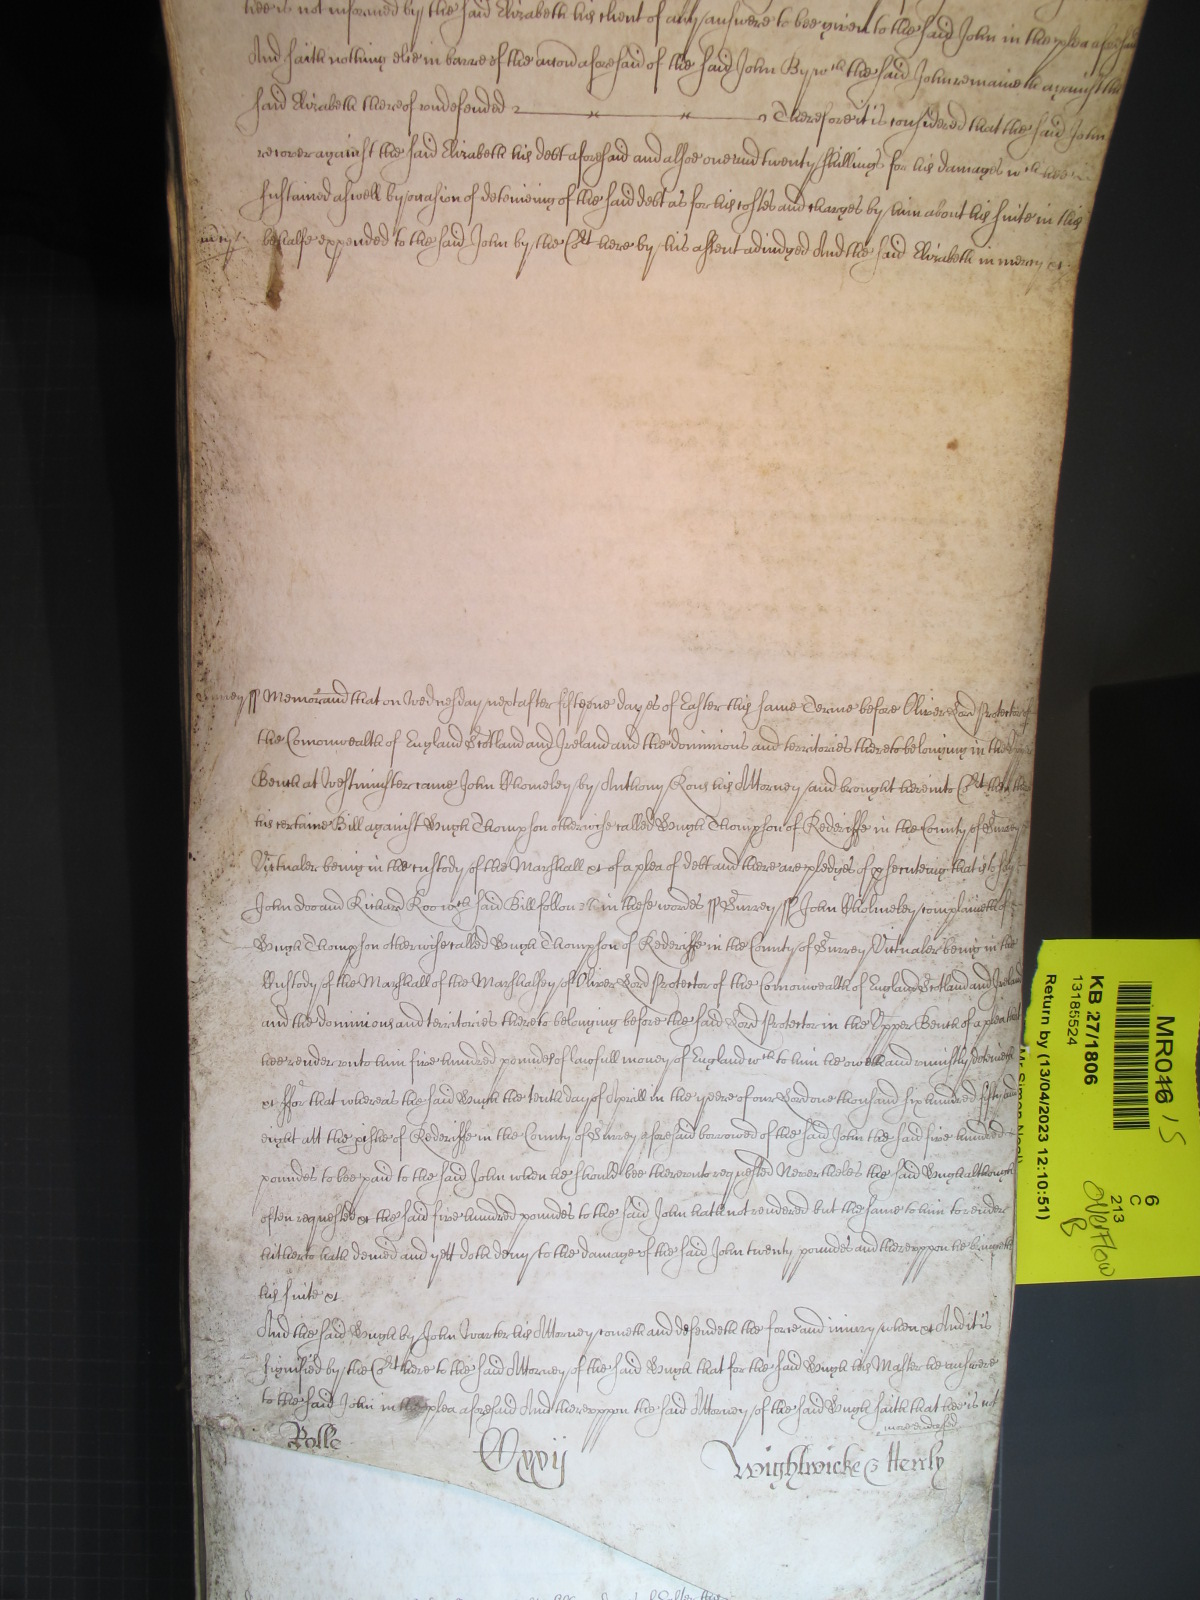 hee is not informed by the said Elizabeth his client of any answere to bee given to the said John in the plea aforesaid
And saith nothing else in barre of the accon aforesaid of the said John By wch the said John remaineth against the
said Elizabeth thereof undefended Therefore it is considered that the said John
recover against the said Elizabeth his debt aforesaid and alsoe one and twenty shillings for his damages wch hee
sustained aswell by occasion of deteineing of the said debt as for his costes and charges by him about his suite in this
behalfe expended to the said John by the Cort here by his assent adiudged And the said Elizabeth in mercy &c
Memorand that on Wednesday next after fifteene dayes of Easter this same Terme before Oliver Lord Protector of
the Comonwealth of England Scotland and Ireland and the dominions and territories thereto belonging in the Upper
Bench at Westminster came John Cholmeley by Anthony Rous his Attorney and brought here into Cort then there
his certaine Bill against Hugh Thompson otherwise called Hugh Thompson of Rederiffe in the County of Surrey
Victualer being in the custody of the Marshall &c of a plea of debt and there are pledges of psecuteing that is to say
John Doo and Richard Roo wch said Bill followeth in these wordes ss Surrey ss John Cholmeley complaineth of
Hugh Thompson otherwise called Hugh Thompson of Rederiffe in the County of Surrey Victualer being in the
Custody of the Marshall of the Marshalsey of Oliver Lord Protector of the Comonwealth of England Scotland and Ireland
and the dominions and territories thereto belonging before the said Lord Protector in the Upper Bench of a plea that
hee render unto him five hundred poundes of lawfull money of England wch to him he oweth and uniustly deteineth
&c ffor that whereas the said Hugh the tenth day of Aprill in the yeere of our Lord one thousand six hundred fifty and
eight att the pishe of Rederiffe in the County of Surrey aforesaid borrowed of the said John the said five hundred
poundes to bee paid to the said John when he should bee thereunto requested Neverthelesse the said Hugh although
often requested &c the said five hundred poundes to the said John hath not rendered but the same to him to render
hitherto hath denied and yett doth deny to the damage of the said John twenty poundes and thereuppon he bringeth
his suite &c
And the said Hugh by John Warter his Attorney cometh and defendeth the force and iniury when &c And it is
signified by the Cort here to the said Attorney of the said Hugh that for the said Hugh his Master he answere
to the said John in the plea aforesaid And thereuppon the said Attorney of the said Hugh saith that hee is not
Rolle Wightwicke & Henly
MR046 15
KB 27/1806
13185524
Return by (13/04/2023 12:10:51)
6
C
213
overflow
B